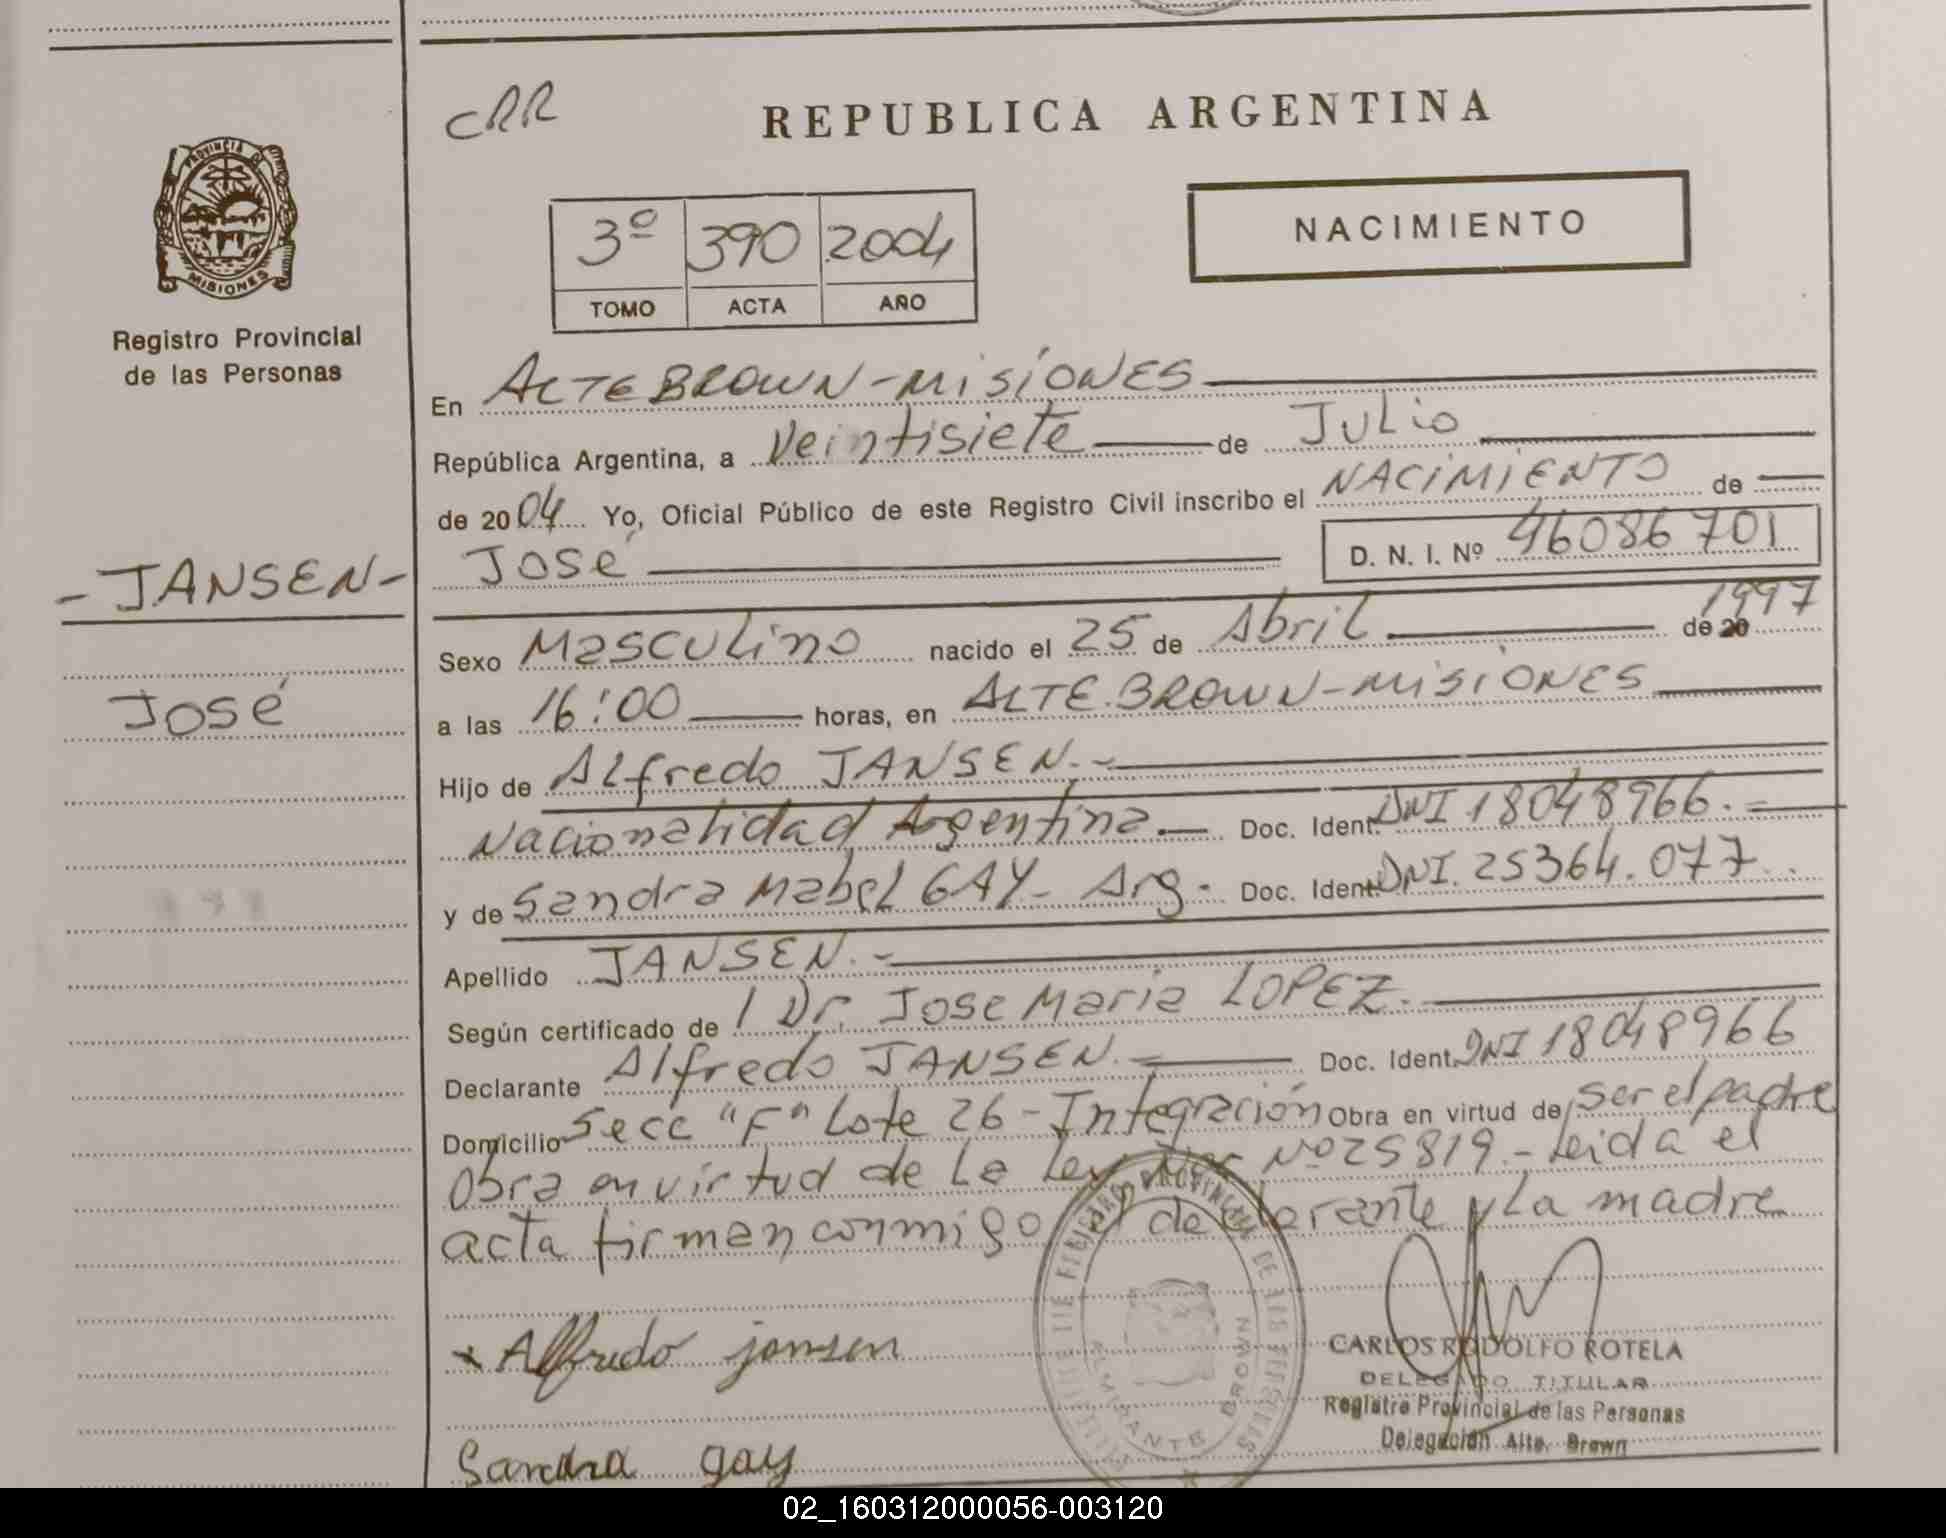 CRR
REPUBLICA ARGENTINA
PROVINCIA DE
MISIONES
Registro Provincial
de las Personas
3º 390 2004
TOMO ACTA AÑO
NACIMIENTO
En ALTE BROWN-MISIONES
República Argentina, a Veintisiete de Julio
de 2004 Yo, Oficial Público de este Registro Civil inscribo el NACIMIENTO de
José D. N. I. Nº 46086701
- JANSEN -
José
Sexo Masculino nacido el 25 de Abril de 20 1997
a las 16:00 horas, en ALTE.BROWN-MISIONES
Hijo de Alfredo JANSEN.-
Nacionalidad Argentina Doc. Ident. DNI 18048966.-
y de Sandra Mabel GAY- Arg. Doc. Ident. DNI. 25364.077
Apellido JANSEN.-
Según certificado de Dr. Jose Maria LOPEZ.
Declarante Alfredo JANSEN.- Doc. Ident. DNI 18048966
Domicilio Secc "F" Lote 26 - Integración Obra en virtud de ser el padre
Obra en virtud de La Ley Nº 25819.- Leida el
acta firman conmigo el declarante y La madre
Alfredo jansen
Sandra gay
ALMIRANTE BROWN
CARLOS RODOLFO ROTELA
DELEGADO TITULAR
Registro Provincial de las Personas
Delegación Alte. Brown
02_160312000056-003120